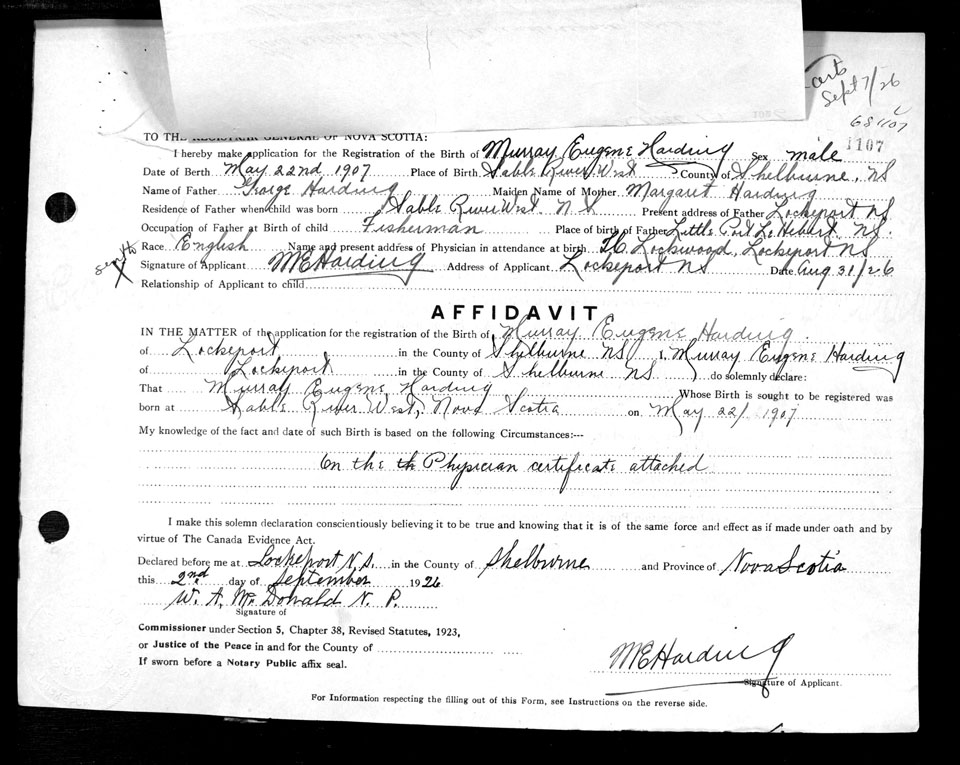 certs
Sept 7/26
681107
1107
TO THE REGISTRAR GENERAL OF NOVA SCOTIA:
I hereby make application for the Registration of the Birth of Murray Eugene Harding Sex male
Date of Berth May 22nd 1907 Place of Birth Sable River West County of Shelburne, NS
Name of Father George Harding Maiden Name of Mother Margaret Harding
Residence of Father when child was born Sable River West. N S Present address of Father Lockeport NS
Occupation of Father at Birth of child Fisherman Place of birth of Father Little Port L. Hebert. NS.
Race English Name and present address of Physician in attendance at birth Lockwood, Lockeport NS
Signature of Applicant M E Harding Address of Applicant Lockeport NS Date Aug 31/26
Relationship of Applicant to child
AFFIDAVIT
IN THE MATTER of the application for the registration of the Birth of Murray Eugene Harding
of Lockeport in the County of Shelburne NS I, Murray Eugene Harding
of Lockeport in the County of Shelburne NS do solemnly declare:
That Murray Eugene Harding Whose Birth is sought to be registered was
born at Sable River West, Nova Scotia on May 22/ 1907
My knowledge of the fact and date of such Birth is based on the following Circumstances:—
On the th Physician certificate attached
I make this solemn declaration conscientiously believing it to be true and knowing that it is of the same force and effect as if made under oath and by
virtue of The Canada Evidence Act.
Declared before me at Lockeport N.S. in the County of Shelburne and Province of Nova Scotia
this 2nd day of September 1926
W. A. McDonald N. P.
Signature of
Commissioner under Section 5, Chapter 38, Revised Statutes, 1923,
or Justice of the Peace in and for the County of
If sworn before a Notary Public affix seal.
M E Harding
Signature of Applicant.
For Information respecting the filling out of this Form, see Instructions on the reverse side.